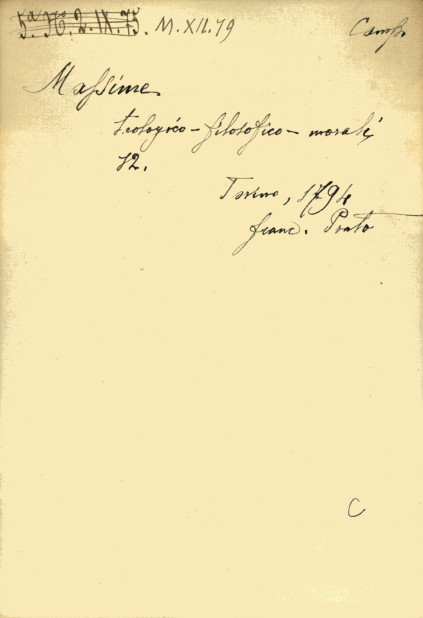 5.a H. 2. IX. 75. M. XII. 79 Camp.
Massime
teologico-filosofico-morali,
12.
Torino, 1794
franc. Prato
C